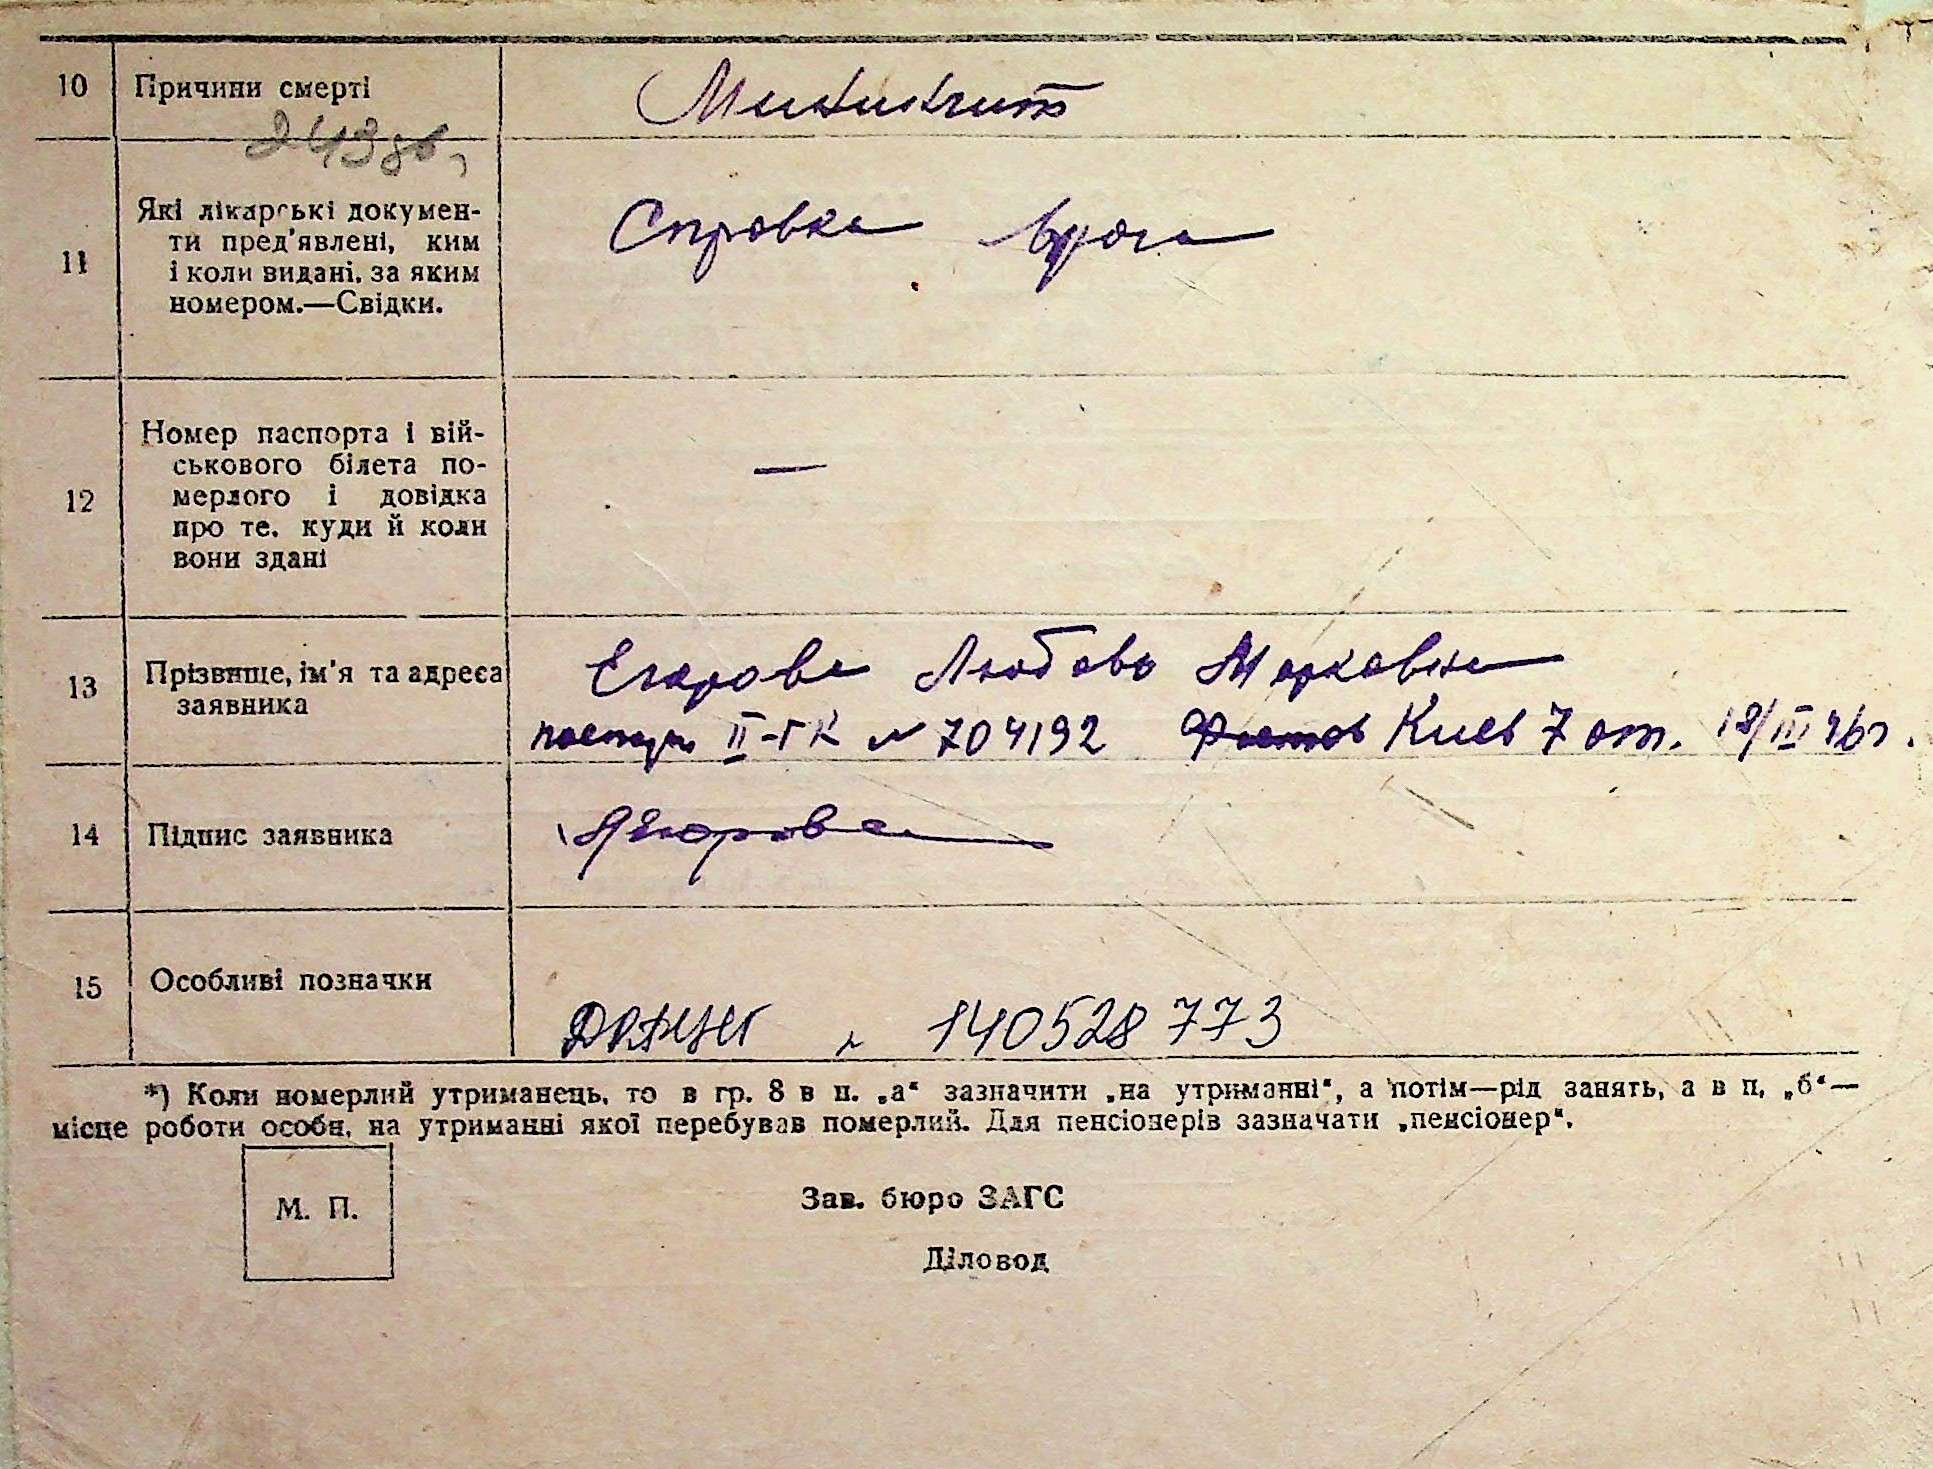 10 Причини смерті Менингит
243дв,
11 Які лікарські докумен-
ти пред'явлені, ким
і коли видані, за яким
номером.—Свідки.
Справка врача
12 Номер паспорта і вій-
ськового білета по-
мерлого і довідка
про те, куди й коли
вони здані
—
13 Прізвище, ім'я та адреса
заявника
Егорова Любовь Марковна
паспорт II-ГК № 704192 Киев 7 от. 18/III 46г.
14 Підпис заявника Егорова
15 Особливі позначки
ДРАЦСГ № 140528773
*) Коли померлий утриманець, то в гр. 8 в п. „а“ зазначити „на утриманні“, а потім—рід занять, а в п, „б“—
місце роботи особи, на утриманні якої перебував померлий. Для пенсіонерів зазначати „пенсіонер“.
М. П.
Зав. бюро ЗАГС
Діловод